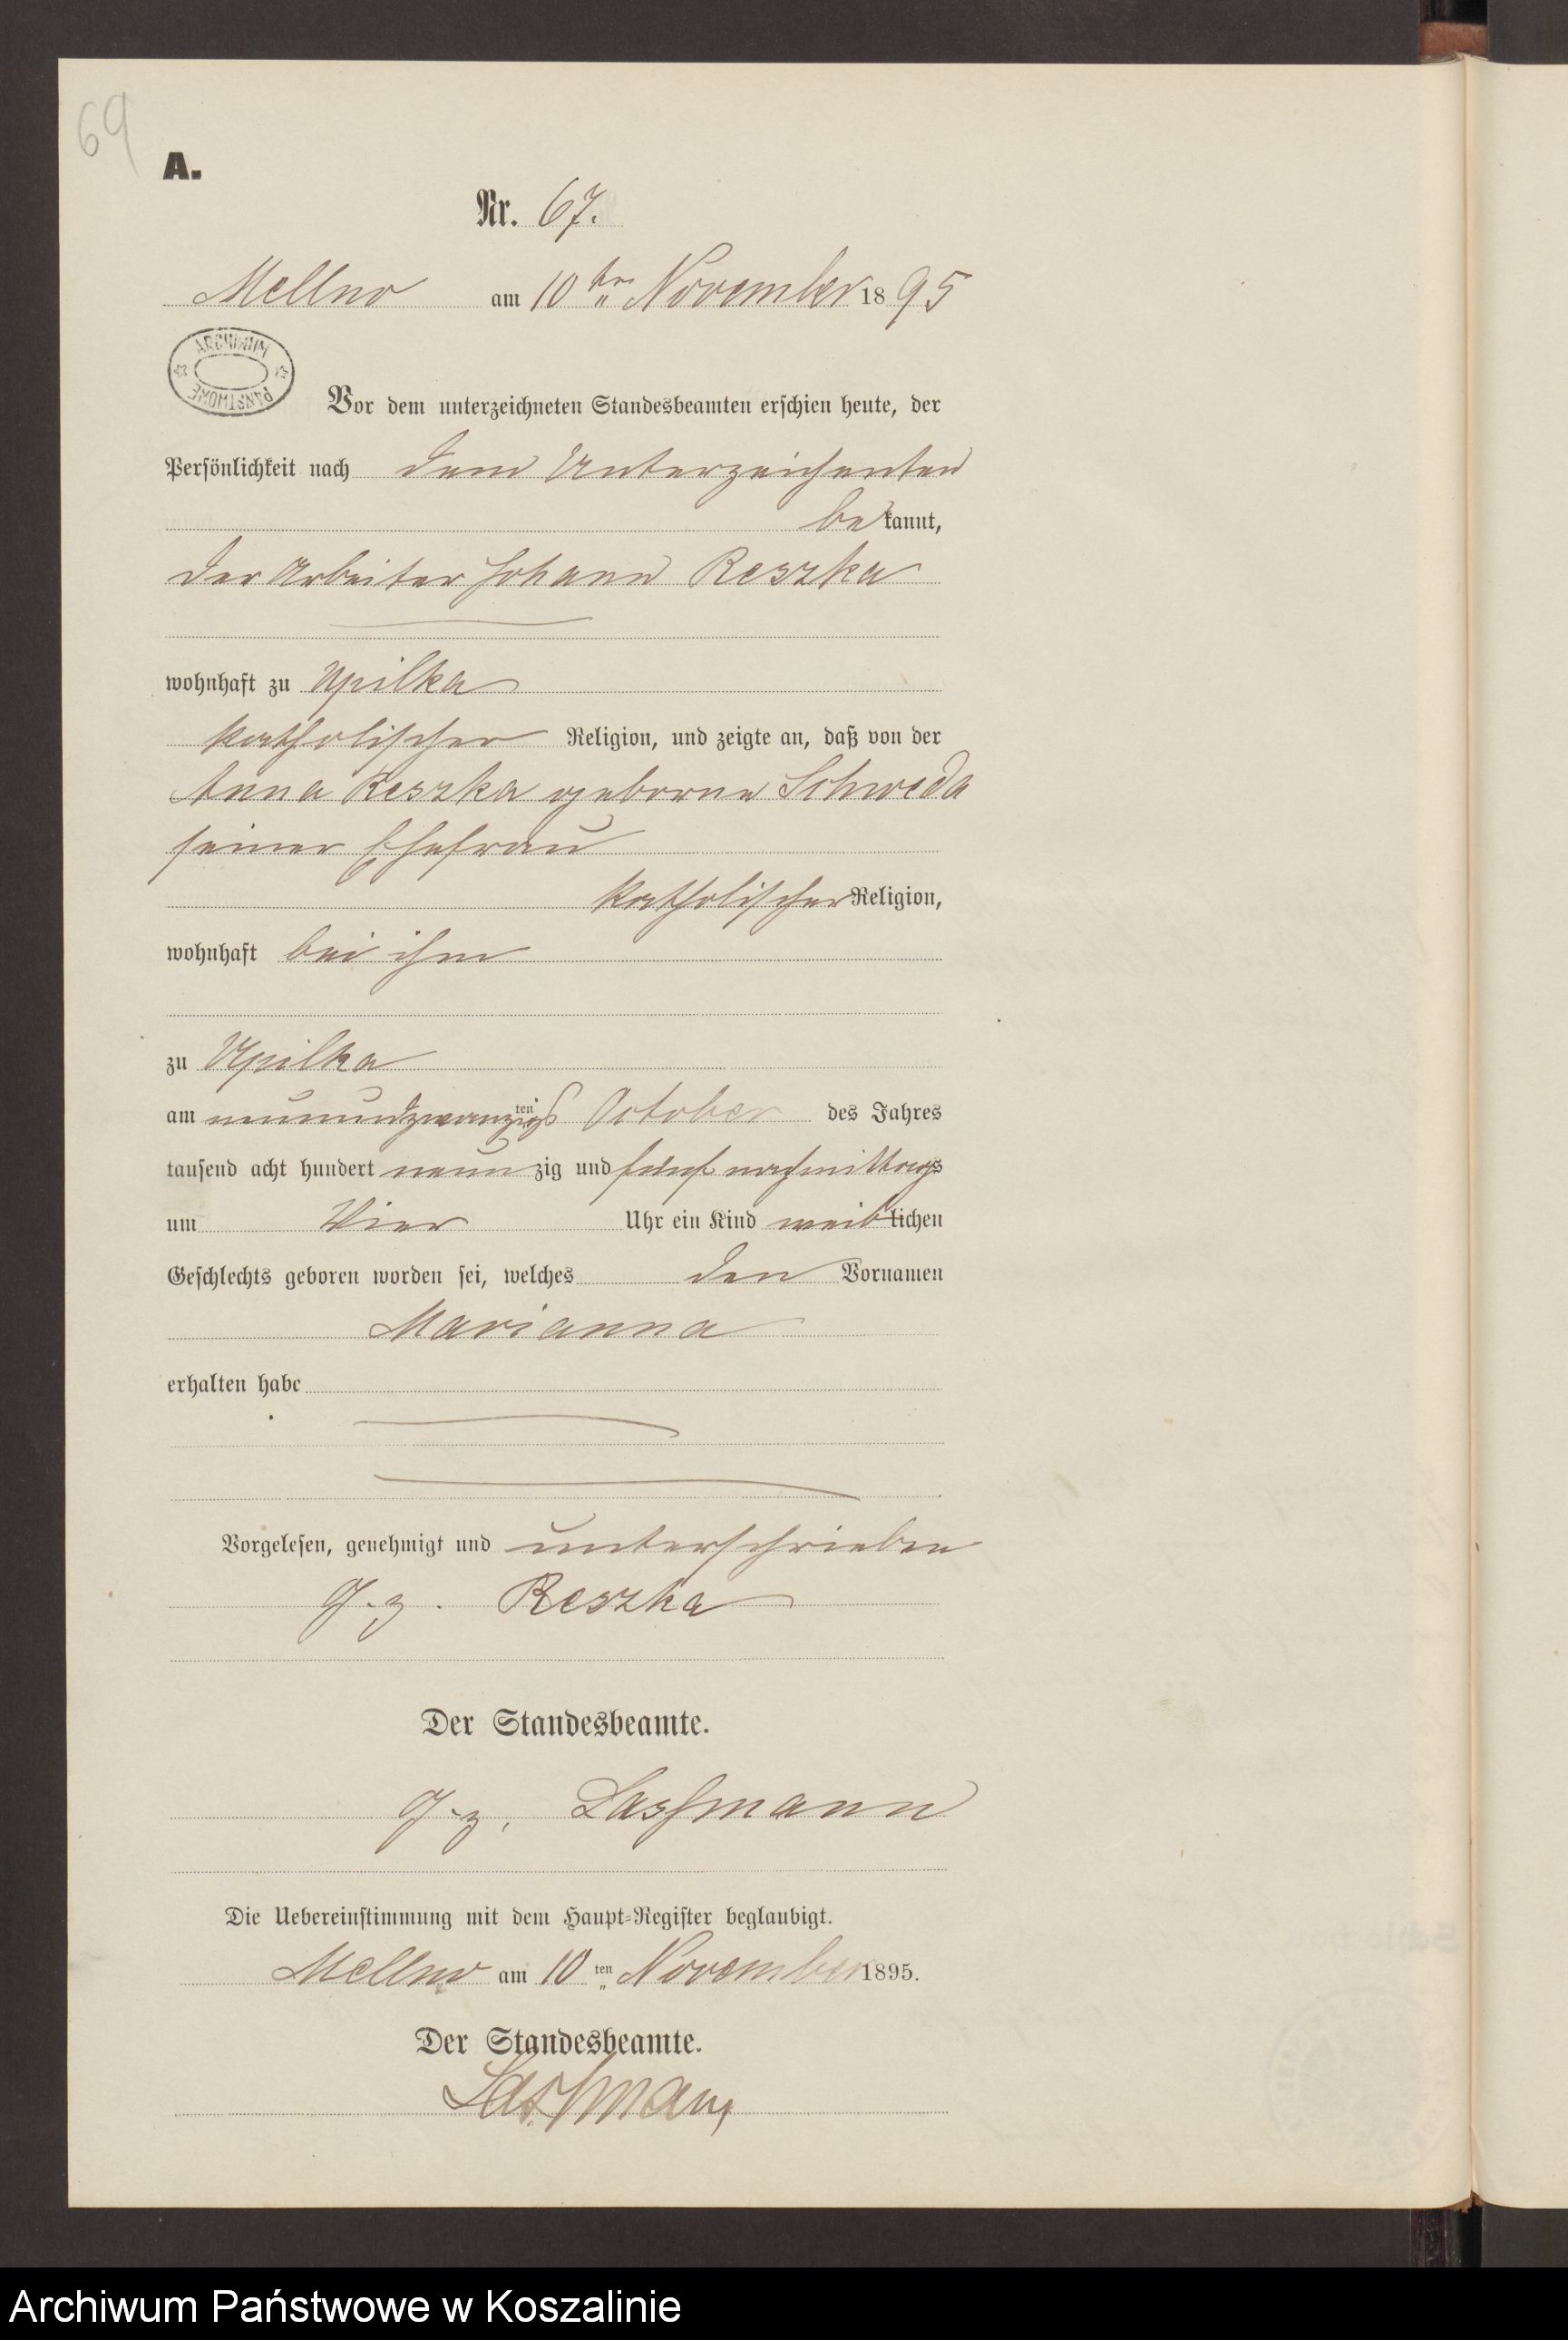 69
A.
Nr. 67.
Mellno am 10ten November 1895
ARCHIWUM PAŃSTWOWE
Vor dem unterzeichneten Standesbeamten erschien heute, der
Persönlichkeit nach dem Unterzeichenten
bekannt,
der Arbeiter Johann Reszka
wohnhaft zu Upilka
katholischer Religion, und zeigte an, daß von der
Anna Reszka geborne Schweda
seiner Ehefrau
katholischer Religion,
wohnhaft bei ihm
zu Upilka
am neunundzwanzigsten October des Jahres
tausend acht hundert neunzig und fünf nachmittags
um Vier Uhr ein Kind weiblichen
Geschlechts geboren worden sei, welches den Vornamen
Marianna
erhalten habe
Vorgelesen, genehmigt und unterschrieben
g. z. Reszka
Der Standesbeamte.
g. z. Lassmann
Die Uebereinstimmung mit dem Haupt-Register beglaubigt.
Mellno am 10ten November 1895.
Der Standesbeamte.
Lassmann
Archiwum Państwowe w Koszalinie